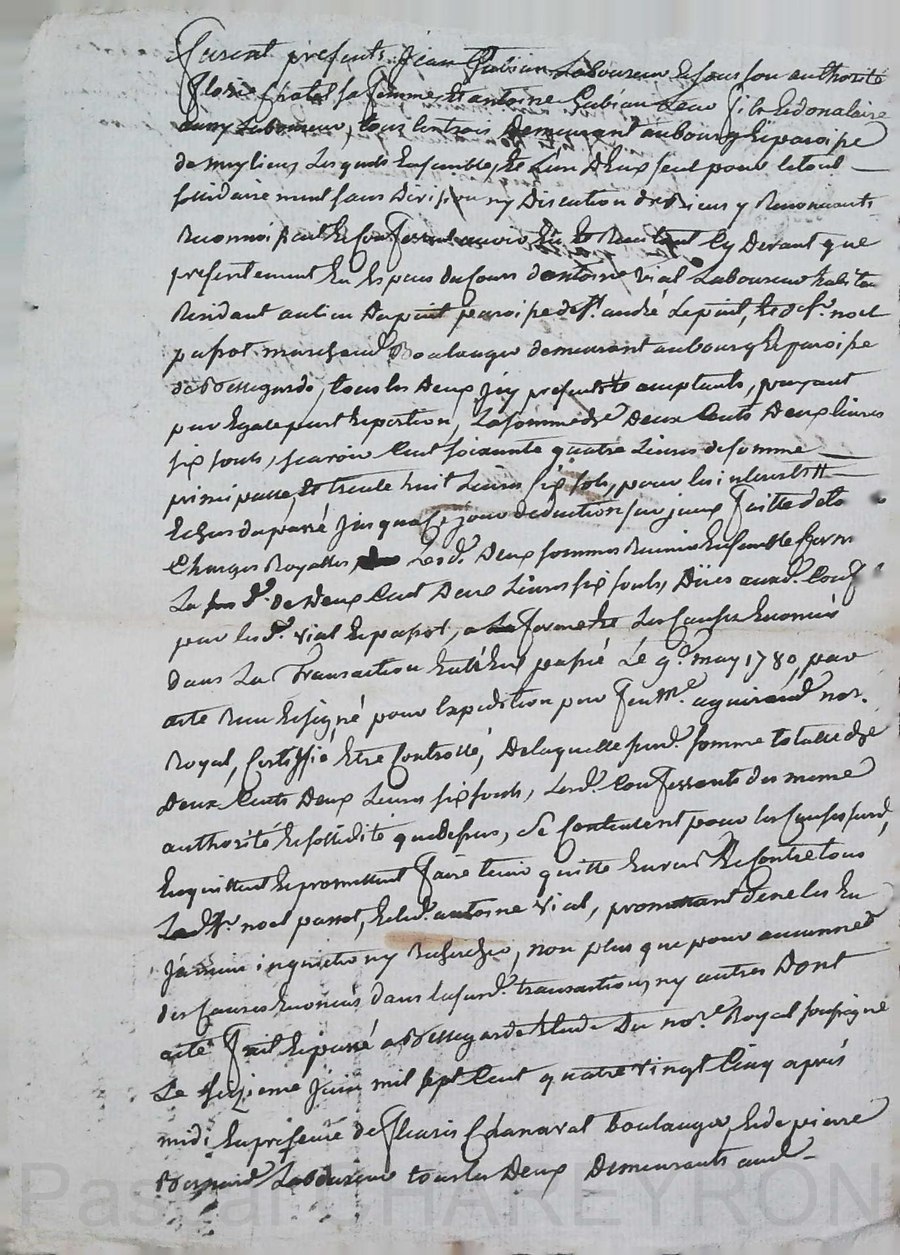 furent presents Jean Gubian Laboureur et sous son authorité
Florie sa femme, et antoine Gubian leur fils et donataire
aussy Laboureur, tous les trois demeurant au bourg et paroisse
de Lesquels Ensemble, et L'un Deux seul pour le tout
sollidairement sans Division ny Discution de Biens y Renoncants
Reconnoissent et Confessent avoir Eu et Receu tant Cy Devant que
presentement En Especes du Cours d'antoine vial Laboureur habitan
Residant au lieu Dupuit paroisse de st. andré Lepuit, et de sr. noel
passot marchand Boulanger demeurant au bourg et paroisse
de Bellegarde, tous les Deux icy presents et acceptants, payant
par Egale part et portion, La somme de Deux Cents Deux livres
six sould, scavoir Cent soixante quatre Livres de somme
principalle, et trente huit Livres six sols, pour les interests
Echus du passé jusqua ce jour deduction sur yceux faitte de la
Charges Royalles, Les d. Deux sommes Reunies Ensemble form
La d. de Deux Cent Deux Livres six sould, Dües aux d. Conf
par les d. vial et passot, a La forme et Les Causes Enoncées
dans La Transaction Entr'Eux passé Le 9e. may 1780, par
acte Receu et signé pour Expedition par feu Me. aguiraud not.
Royal, Certiffié Etre Controllé, De laquelle surd. somme totalle de
Deux Cents Deux Livres six sould, Les d. Confessants des meme
authorité et sollidité que dessus, se Contentent pour les Causes surd,
En quittent et promettent faire tenir quitte Envers Et Contre tous
Led. sr. noel passot, et led. antoine vial, promettant de ne les En
jamais inquietter ny Rechercher, non plus que pour aucunes
des Causes Enoncées dans la surd. transaction, ny autres Dont
acte fait et passé a Bellegarde Etude Du no.re Royal soussigné
Le seizieme juin mil sept Cent quatre vingt Cinq après
midi En presence de fleuris Chanaval boulanger, et de pierre
Bernard Laboureur tous les Deux Demeurants aud.
Pascal CHAREYRON